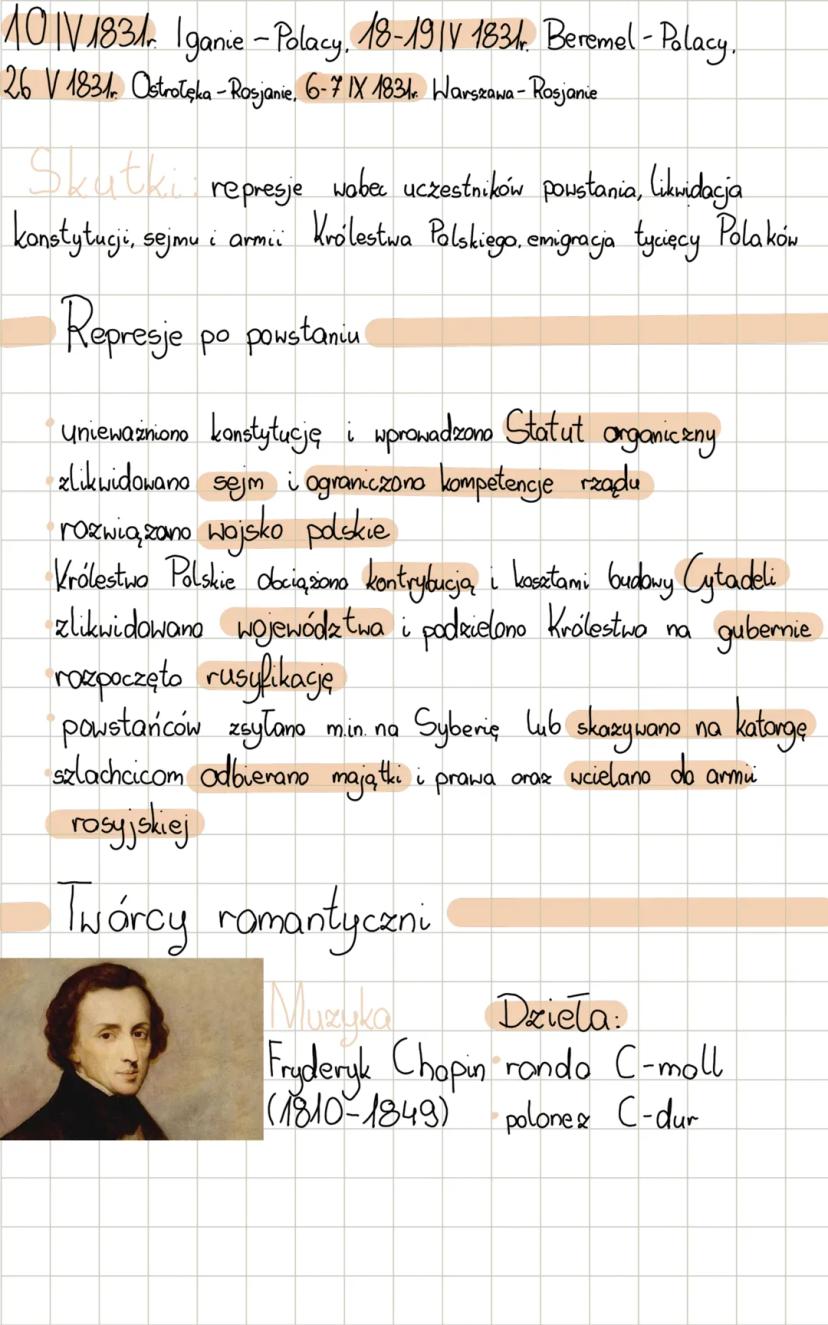 10 IV 1831r. Iganie – Polacy, 18-19 IV 1831r. Beremel - Polacy,
26 V 1831r. Ostrołęka – Rosjanie, 6-7 IX 1831r. Warszawa – Rosjanie
Skutki: represje wobec uczestników powstania, likwidacja
konstytucji, sejmu i armii Królestwa Polskiego, emigracja tycięcy Polaków
Represje po powstaniu
• unieważniono konstytucję i wprowadzono Statut organiczny
• zlikwidowano sejm i ograniczono kompetencje rządu
• rozwiązano wojsko polskie
• Królestwo Polskie obciążono kontrybucją i kosztami budowy Cytadeli
• zlikwidowano województwa i podzielono Królestwo na gubernie
• rozpoczęto rusyfikację
• powstańców zsyłano m.in. na Syberię lub skazywano na katorgę
• szlachcicom odbierano majątki i prawa oraz wcielano do armii
rosyjskiej
Twórcy romantyczni
Muzyka Dzieła:
Fryderyk Chopin • rondo C-moll
(1810-1849) • polonez C-dur